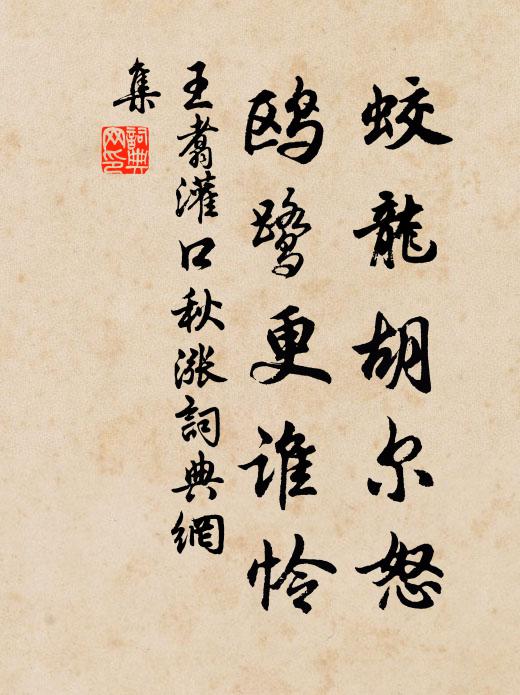 蛟龍胡尔怒
鸥鹭更谁怜
王翥灌口秋涨詞典網
集
詞典
网印